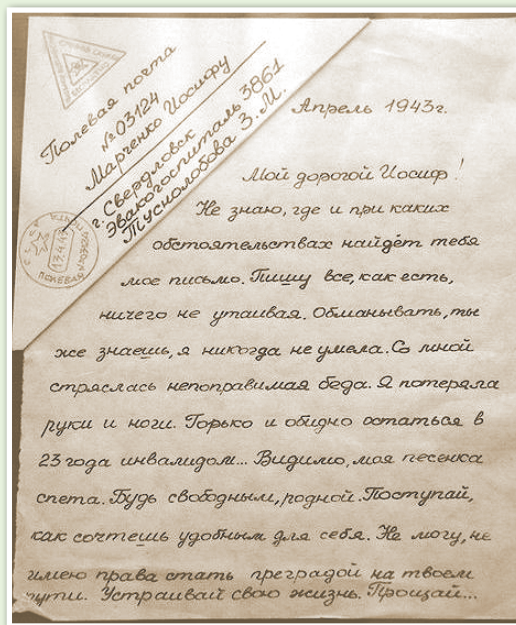 Полевая почта
№03124
Марченко Иосифу
г. Свердловск
Эвакогоспиталь 3861
Туснолобова З.М.
Апрель 1943г.
Мой дорогой Иосиф!
Не знаю, где и при каких
обстоятельствах найдёт тебя
мое письмо. Пишу все, как есть,
ничего не утаивая. Обманывать, ты
же знаешь, я никогда не умела. Со мной
стряслась непоправимая беда. Я потеряла
руки и ноги. Горько и обидно остаться в
23 года инвалидом... Видимо, моя песенка
спета. Будь свободным, родной. Поступай,
как сочтешь удобным для себя. Не могу, не
имею права стать преградой на твоем
пути. Устраивай свою жизнь. Прощай...